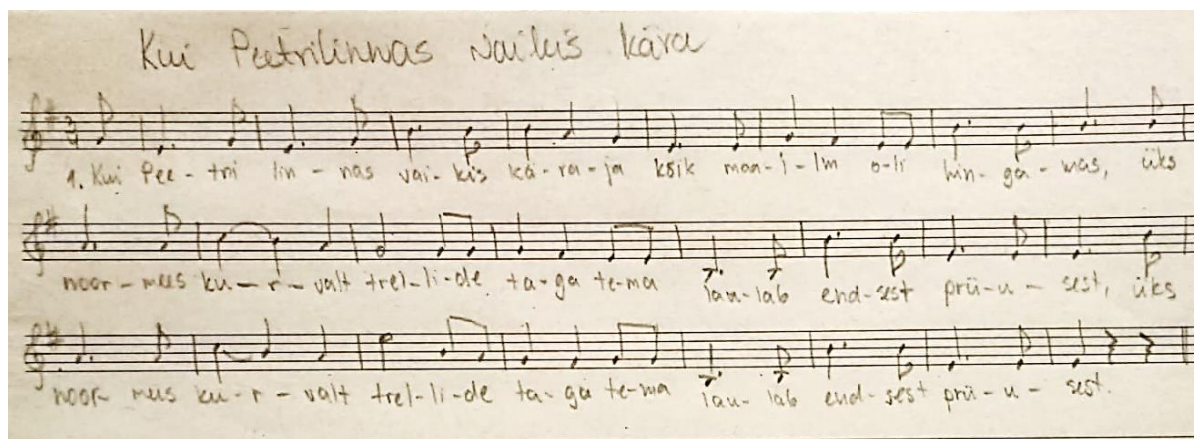 Kui Peetrilinnas vaikis kära
1. Kui Pee-tri lin-nas vai-kis kä-ra-ja kõik maa-i-lm o-li hin-ga-mas, üks
noor-mees ku-r-valt trel-li-de ta-ga te-ma lau-lab end-sest prü-u-sest, üks
noor-mees ku-r-valt trel-li-de ta-ga te-ma lau-lab end-sest prü-u-sest.